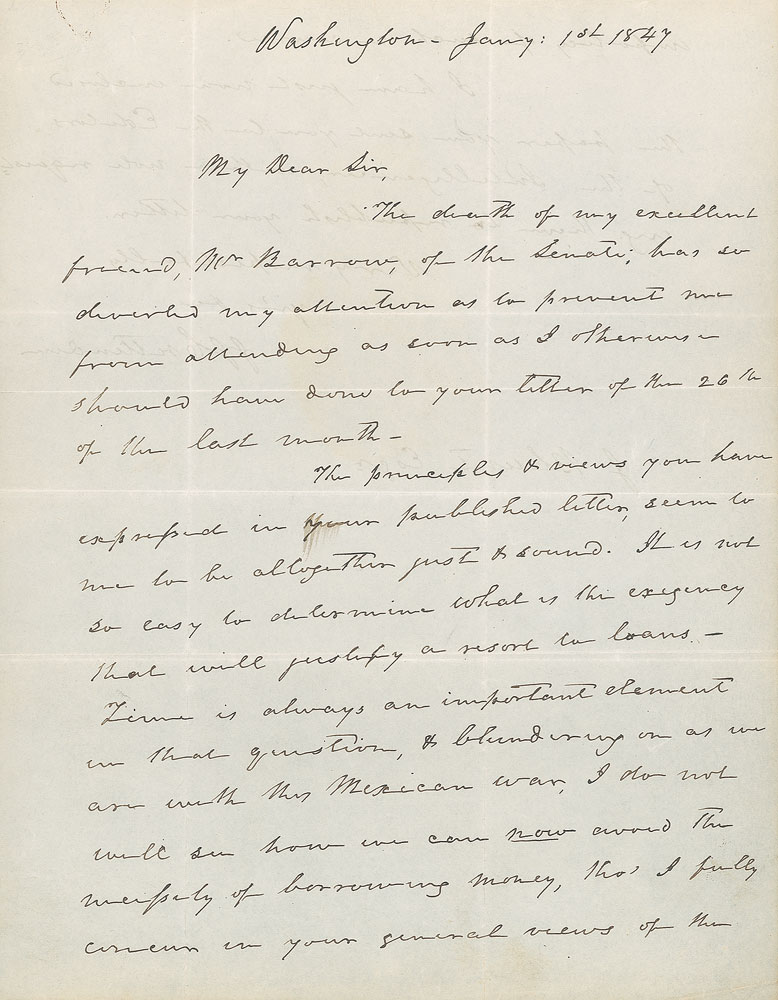 Washington - Jany: 1st 1847
My Dear Sir,
The death of my excellent
friend, Mr Barrow, of the Senate, has so
diverted my attention as to prevent me
from attending as soon as I otherwise
should have done to your letter of the 26th
of the last month -
The principles & views you have
expressed in your published letter, seem to
me to be altogether just & sound. It is not
so easy to determine what is the exigency
that will justify a resort to loans. -
Time is always an important element
in that question, & blundering on as we
are with this Mexican war, I do not
well see how we can now avoid the
necessity of borrowing money, tho' I fully
concur in your general views of the